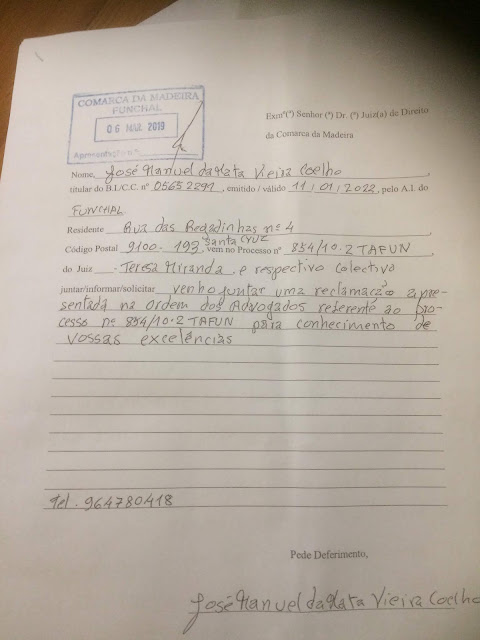 COMARCA DA MADEIRA
FUNCHAL
06 MAI. 2019
Apresentação n.º
Exmº(ª) Senhor (ª) Dr. (ª) Juiz(a) de Direito
da Comarca da Madeira
Nome, José Manuel da Mata Vieira Coelho,
titular do B.I./C.C. nº 05652291, emitido / válido 11/01/2022, pelo A.I. do
FUNCHAL
Residente Rua das Regadinhas nº 4
Código Postal 9100-193 Santa CRUZ vem no Processo nº 854/10.2 TAFUN
do Juiz Teresa Miranda, e respectivo colectivo
juntar/informar/solicitar venho juntar uma reclamação apre-
sentada na Ordem dos Advogados referente ao pro-
cesso nº 854/10.2 TAFUN para conhecimento de
vossas excelências
Tel. 964780418
Pede Deferimento,
José Manuel da Mata Vieira Coelho